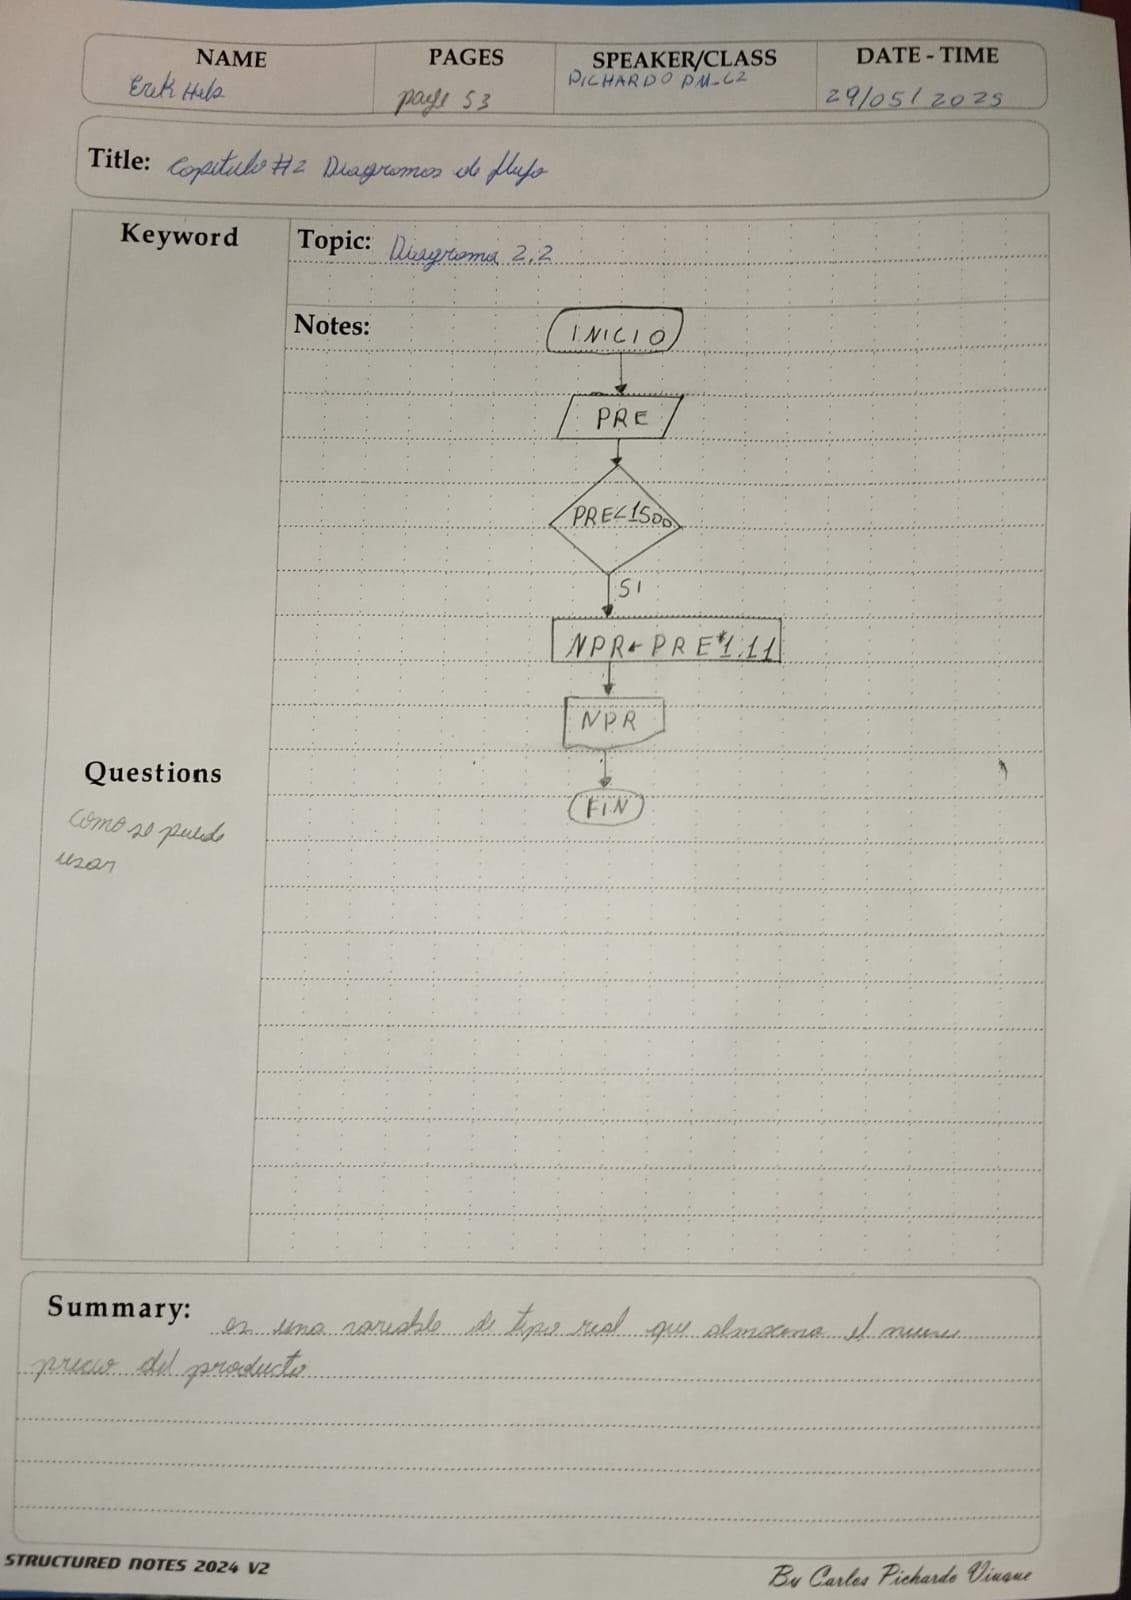 NAME
PAGES
SPEAKER/CLASS
DATE - TIME
Erik
page 53
PICHARDO PM-C2
29/05/2025
Title: Capitulo #2 Diagramas de flujo
Keyword
Topic: Diagrama 2.2
Notes:
INICIO
PRE
PRE<1500
SI
NPR← PRE*1.11
NPR
FIN
Questions
como se puede
usar
Summary: es una variable de tipo real que almacena el nuevo
precio del producto
STRUCTURED NOTES 2024 V2
By Carlos Pichardo Viuque